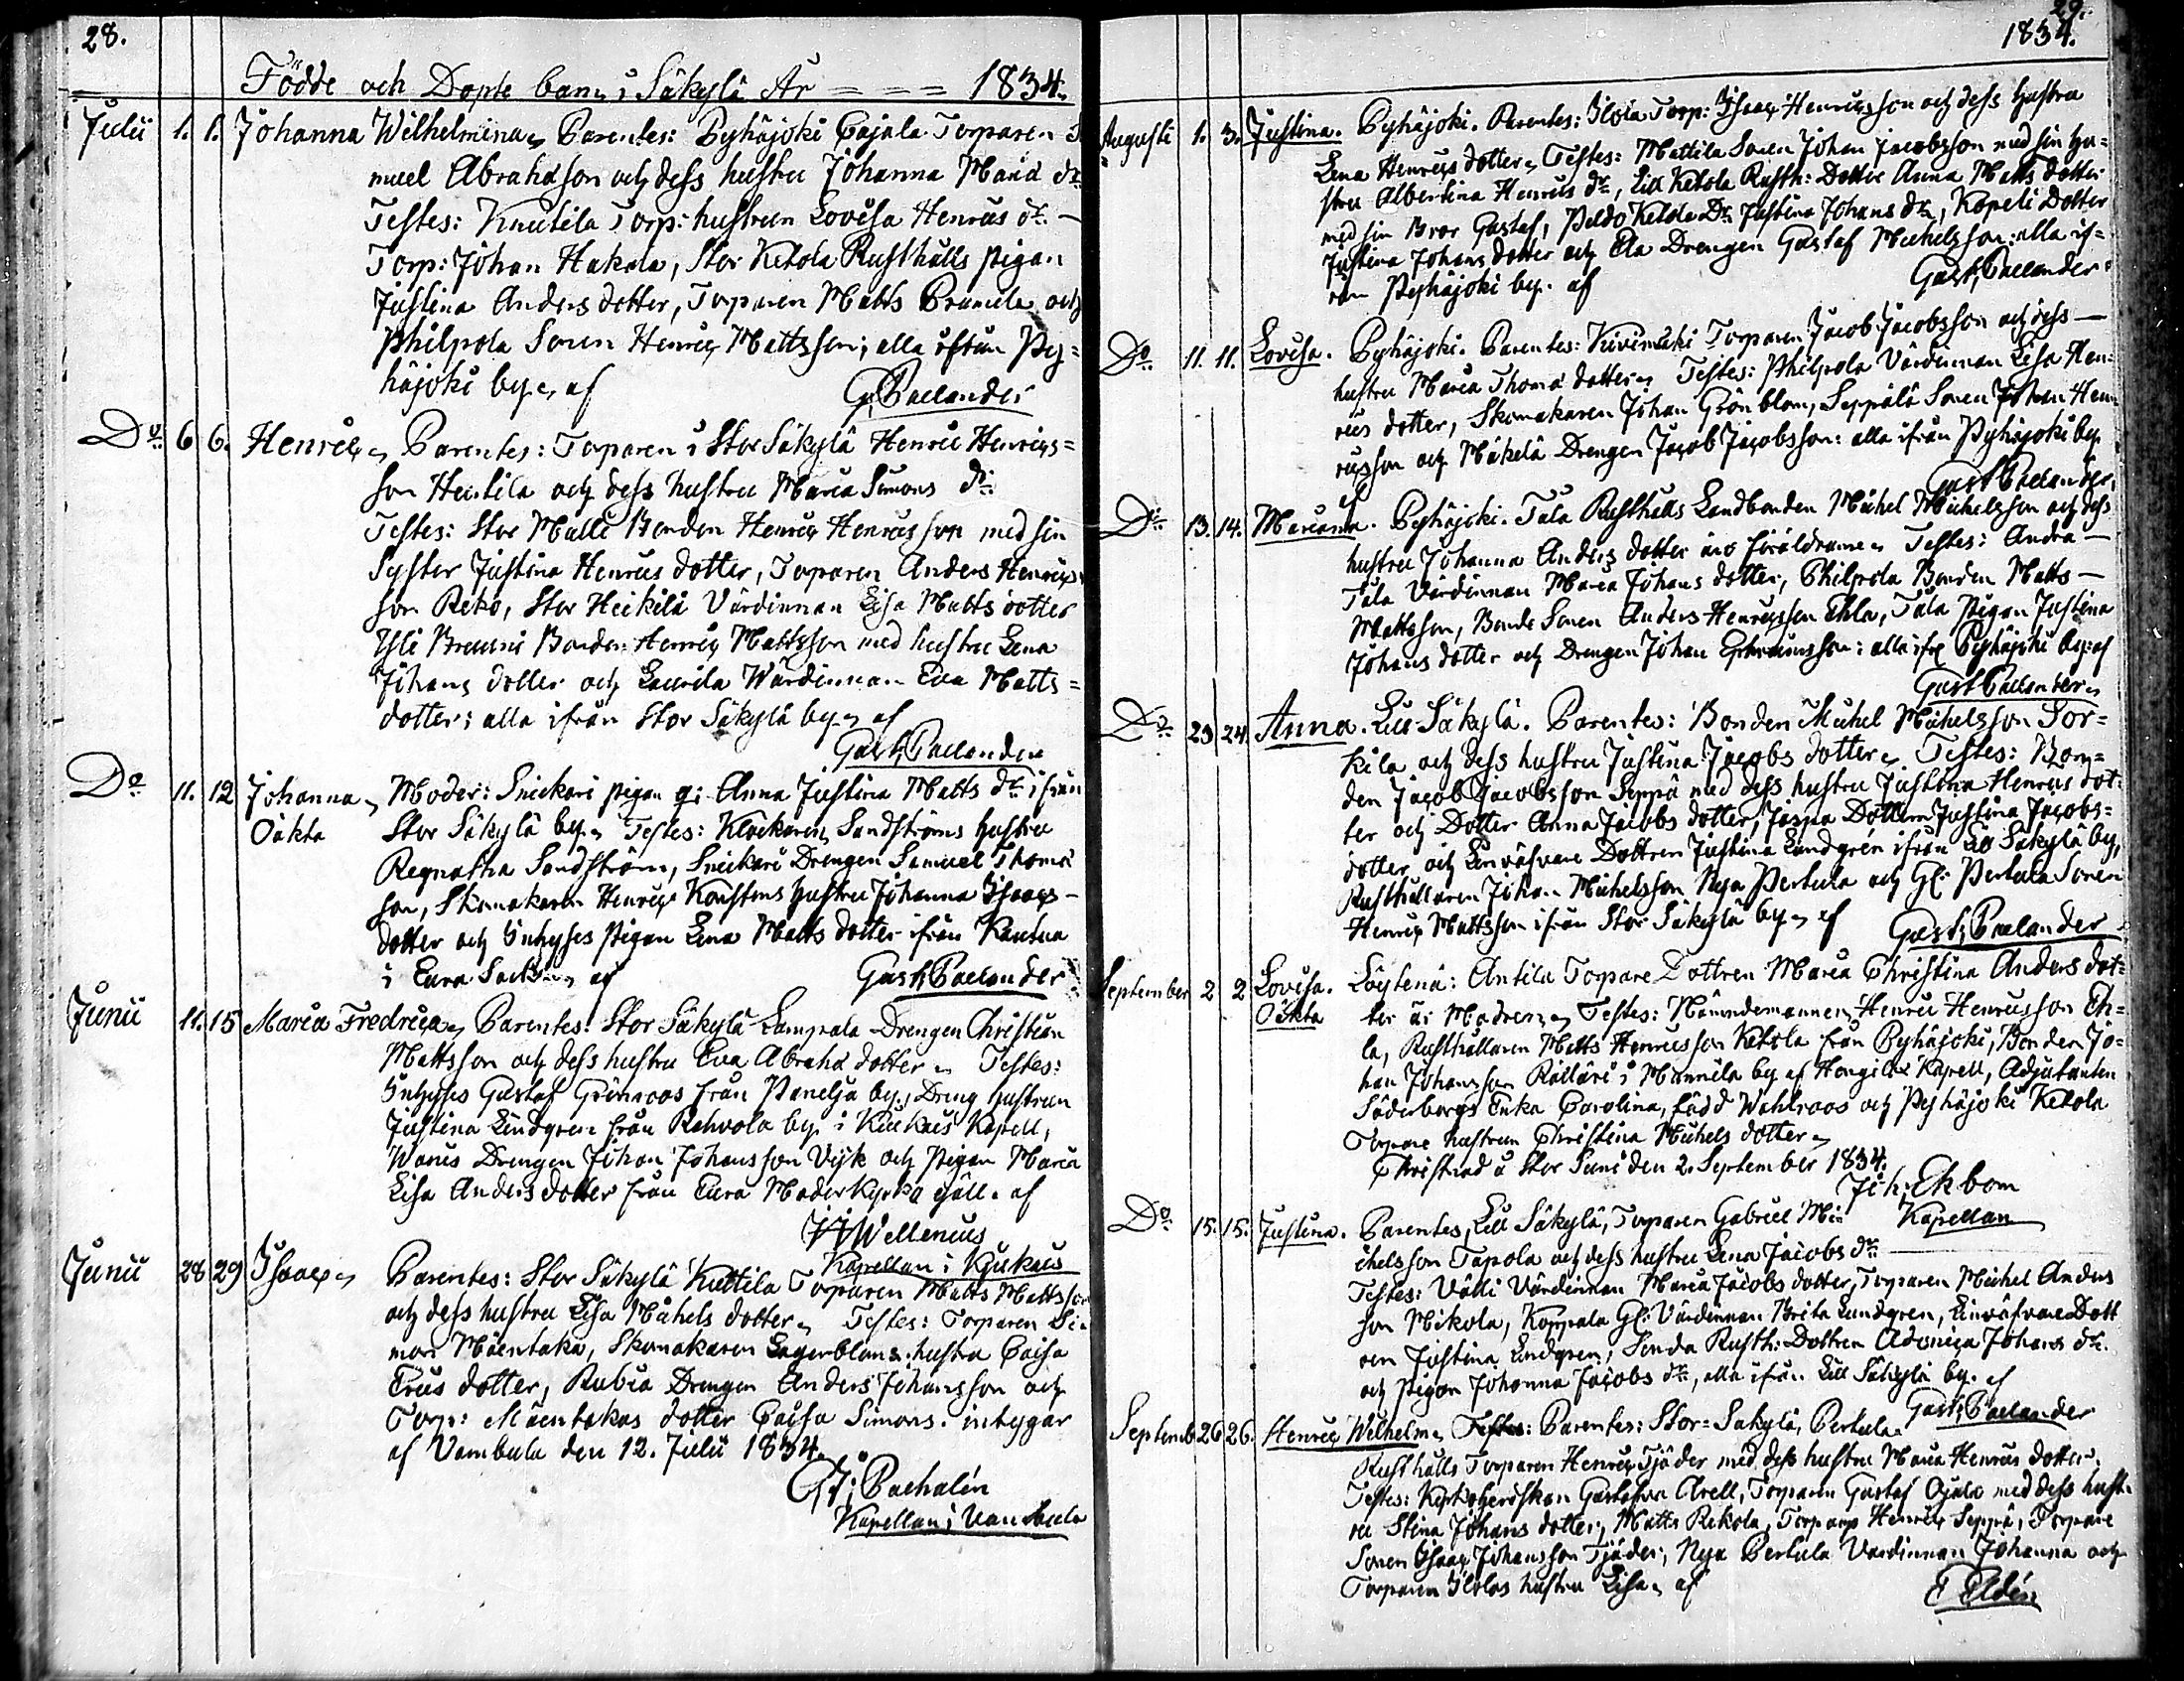 28.
Födde och Döpte barn i Säkylä År = = = 1834.
Julii 1. 1. Johanna Wilhelmina, Parentes: Pyhäjoki Cajala Torparen
muel Abrahdson och dess hustru Johanna Mariä dr.
Testes: Knutila Torp: hustrun Lovisa Henrics dr. —
Torp: Johan Hakala, Stor Ketola Rusthålls pigan
Justina Anders dotter, Torparen Matts Pramila och
Philpola Sonen Henric Mattsson; alla ifrån Py=
häjoki by. af G. Paelander
Do 6 6. Henric, Parentes: Torparen i Stor Säkylä Henric Henrics=
son Heikila och dess hustru Maria Simons dr.
Testes: Stor Mälli Bonden Henric Henricsson med sin
Syster Justina Henrics dotter, Torparen Anders Henrics
son Reko, Stor Heikilä Värdinnan Lisa Matts dotter
Yli Bonden Henric Mattsson med hustru Lena
Johans dotter och Laurila Wärdinnan Eva Matts=
dotter; alla ifrån Stor Säkylä by. af
Gust. Paelander
Do 11. 12 Johanna, Moder: Snickari pigan Anna Justina Matts dr. ifrån
Oäkta Stor Säkylä by. Testes: Klockaren Sandströms hustru
Regnatha Sandström, Snickari Drengen Samuel Thomæ
son, Skomakaren Henric Konstens hustru Johanna Isaacs—
dotter och Inhyses pigan Lena Matts dotter ifrån Kautua
i Eura Sockn, af Gust. Paelander
Junii 11. 15 Maria Fredrica, Parentes: Stor Säkylä Lampala Drengen Christian
Mattsson och dess hustru Eva Abrahd dotter. Testes:
Inhyses Gustaf Grönroos från Panelja by, Dreng hustrun
Justina Lindgren från Rahvola by i Kiukais Kapell,
Wanis Drengen Johan Johansson Vijk och pigan Maria
Lisa Anders dotter från Eura Moderkyrko gäll. af
Wellenius
Kapellan i Kjukais
Junii 28 29 Isaac, Parentes: Stor Säkylä Kuttila Torparen Matts Mattsson
och dess hustru Lisa Michels dotter. Testes: Torparen Si=
mon Mäentaka, Skomakaren Lagerbloms hustru Caisa
Erics dotter, Rubia Drengen Anders Johansson och
Torp: Mäentakas dotter Caisa Simons. intygar
af Vambula den 12. Julii 1834.
Pachalén
Kapellan i Vambula
29.
1834.
Augusti 1. 3. Justina. Pyhäjoki. Parentes: Ilola Torp: Isaac Henricsson och dess hustru
Lena Henrics dotter, Testes: Mattila Sonen Johan Jacobsson med sin hu=
stru Albertina Henrics dr., Lill Ketola Rusth: Dotter Anna Matts dotter
med sin Bror Gustaf, Peldo Ketola Dr. Justina Johans dr., Kopeli Dotter
Justina Johans dotter och Ela Drengen Gustaf Michelsson: alla if=
rån Pyhäjoki by. af Gust. Paelander
Do. 11. 11. Lovisa. Pyhäjoki. Parentes: Kivimäki Torparen Jacob Jacobsson och dess —
hustru Maria Thomæ dotter, Testes: Philpola Värdinnan Lisa Hen=
rics dotter, Skomakaren Johan Grönblom, Seppälä Sonen Johan Hen=
ricsson och Mäkelä Drengen Jacob Jacobsson: alla ifrån Pyhäjoki by.
af Gust. Paelander.
Do. 13. 14. Marianna. Pyhäjoki. Tala Rusthålls Landbonden Michel Michelsson och dess
hustru Johanna Anders dotter äro föräldrarne, Testes: Andra —
Tala Värdinnan Maria Johans dotter, Philpola Bonden Matts —
Mattsson, Bonde Sonen Anders Henricsson Ehla, Tala pigan Justina
Johans dotter och Drengen Johan Ephraimsson: alla ifr. Pyhäjoki by: af
Gust Paelander
Do. 23 24. Anna. Lill Säkylä. Parentes: Bonden Michel Michelsson Sor=
kila och dess hustru Justina Jacobs dotter, Testes: Bon=
den Jacob Jacobsson Seppä med dess hustru Justina Henrics dot=
ter och Dotter Anna Jacobs dotter, Jaspa Dottern Justina Jacobs=
dotter och Linväfvare Dottren Justina Lundgrén ifrån Lill Säkylä by,
Rusthållaren Johan Michelsson Nya Pertula och Gl. Pertula Sonen
Henric Mattsson ifrån Stor Säkylä by. af Gust. Paelander
September 2 2 Lovisa. Löytenä: Antila Torpare Dottren Maria Christina Anders dot=
Oäkta ter är Modren, Testes: Nämndemannen Henric Henricsson Eh=
la, Rusthållaren Matts Henricsson Ketola från Pyhäjoki, Bonden Jo=
han Johansson Rälläri i Mannila by af Hongilax Kapell, Adjutanten
Söderborgs Enka Carolina, född Wahlroos och Pyhäjoki Ketola
Torpare hustrun Christina Michels dotter,
Christnad å Stor Sunni den 2. September 1834.
Joh. Ekbom
Kapellan
Do. 15. 15. Justina. Parentes, Lill Säkylä, Torparen Gabriel Mi=
chelsson Tapola och dess hustru Lena Jacobs dr. —
Testes: Välli Värdinnan Maria Jacobs dotter, Torparen Michel Anders
son Mikola, Koppala Gl: Värdinnan Brita Lundgren, Linväfvare Dott
ren Justina Lindgren, Simola Rusth: Dottren Adonica Johans dr.
och pigan Johanna Jacobs dr., alla ifrån Lill Säkylä by. af
Gust. Paelander
Septemb. 26 26. Henric Wilhelm, Parentes: Stor=Säkylä, Pertula
Rusthålls Torparen Henric Tjäder med dess hustru Maria Henrics dotter.
Testes: Gustafva Arell, Torparen Gustaf Ojala med dess hust=
ru Stina Johans dotter, Matts Rekola, Torparen Henric Seppä, Torpare
Sonen Isaac Johansson Tjäder, Nya Pertula Värdinnan Johanna och
Torparen Ilolas hustru Lisa, af
E Eldén